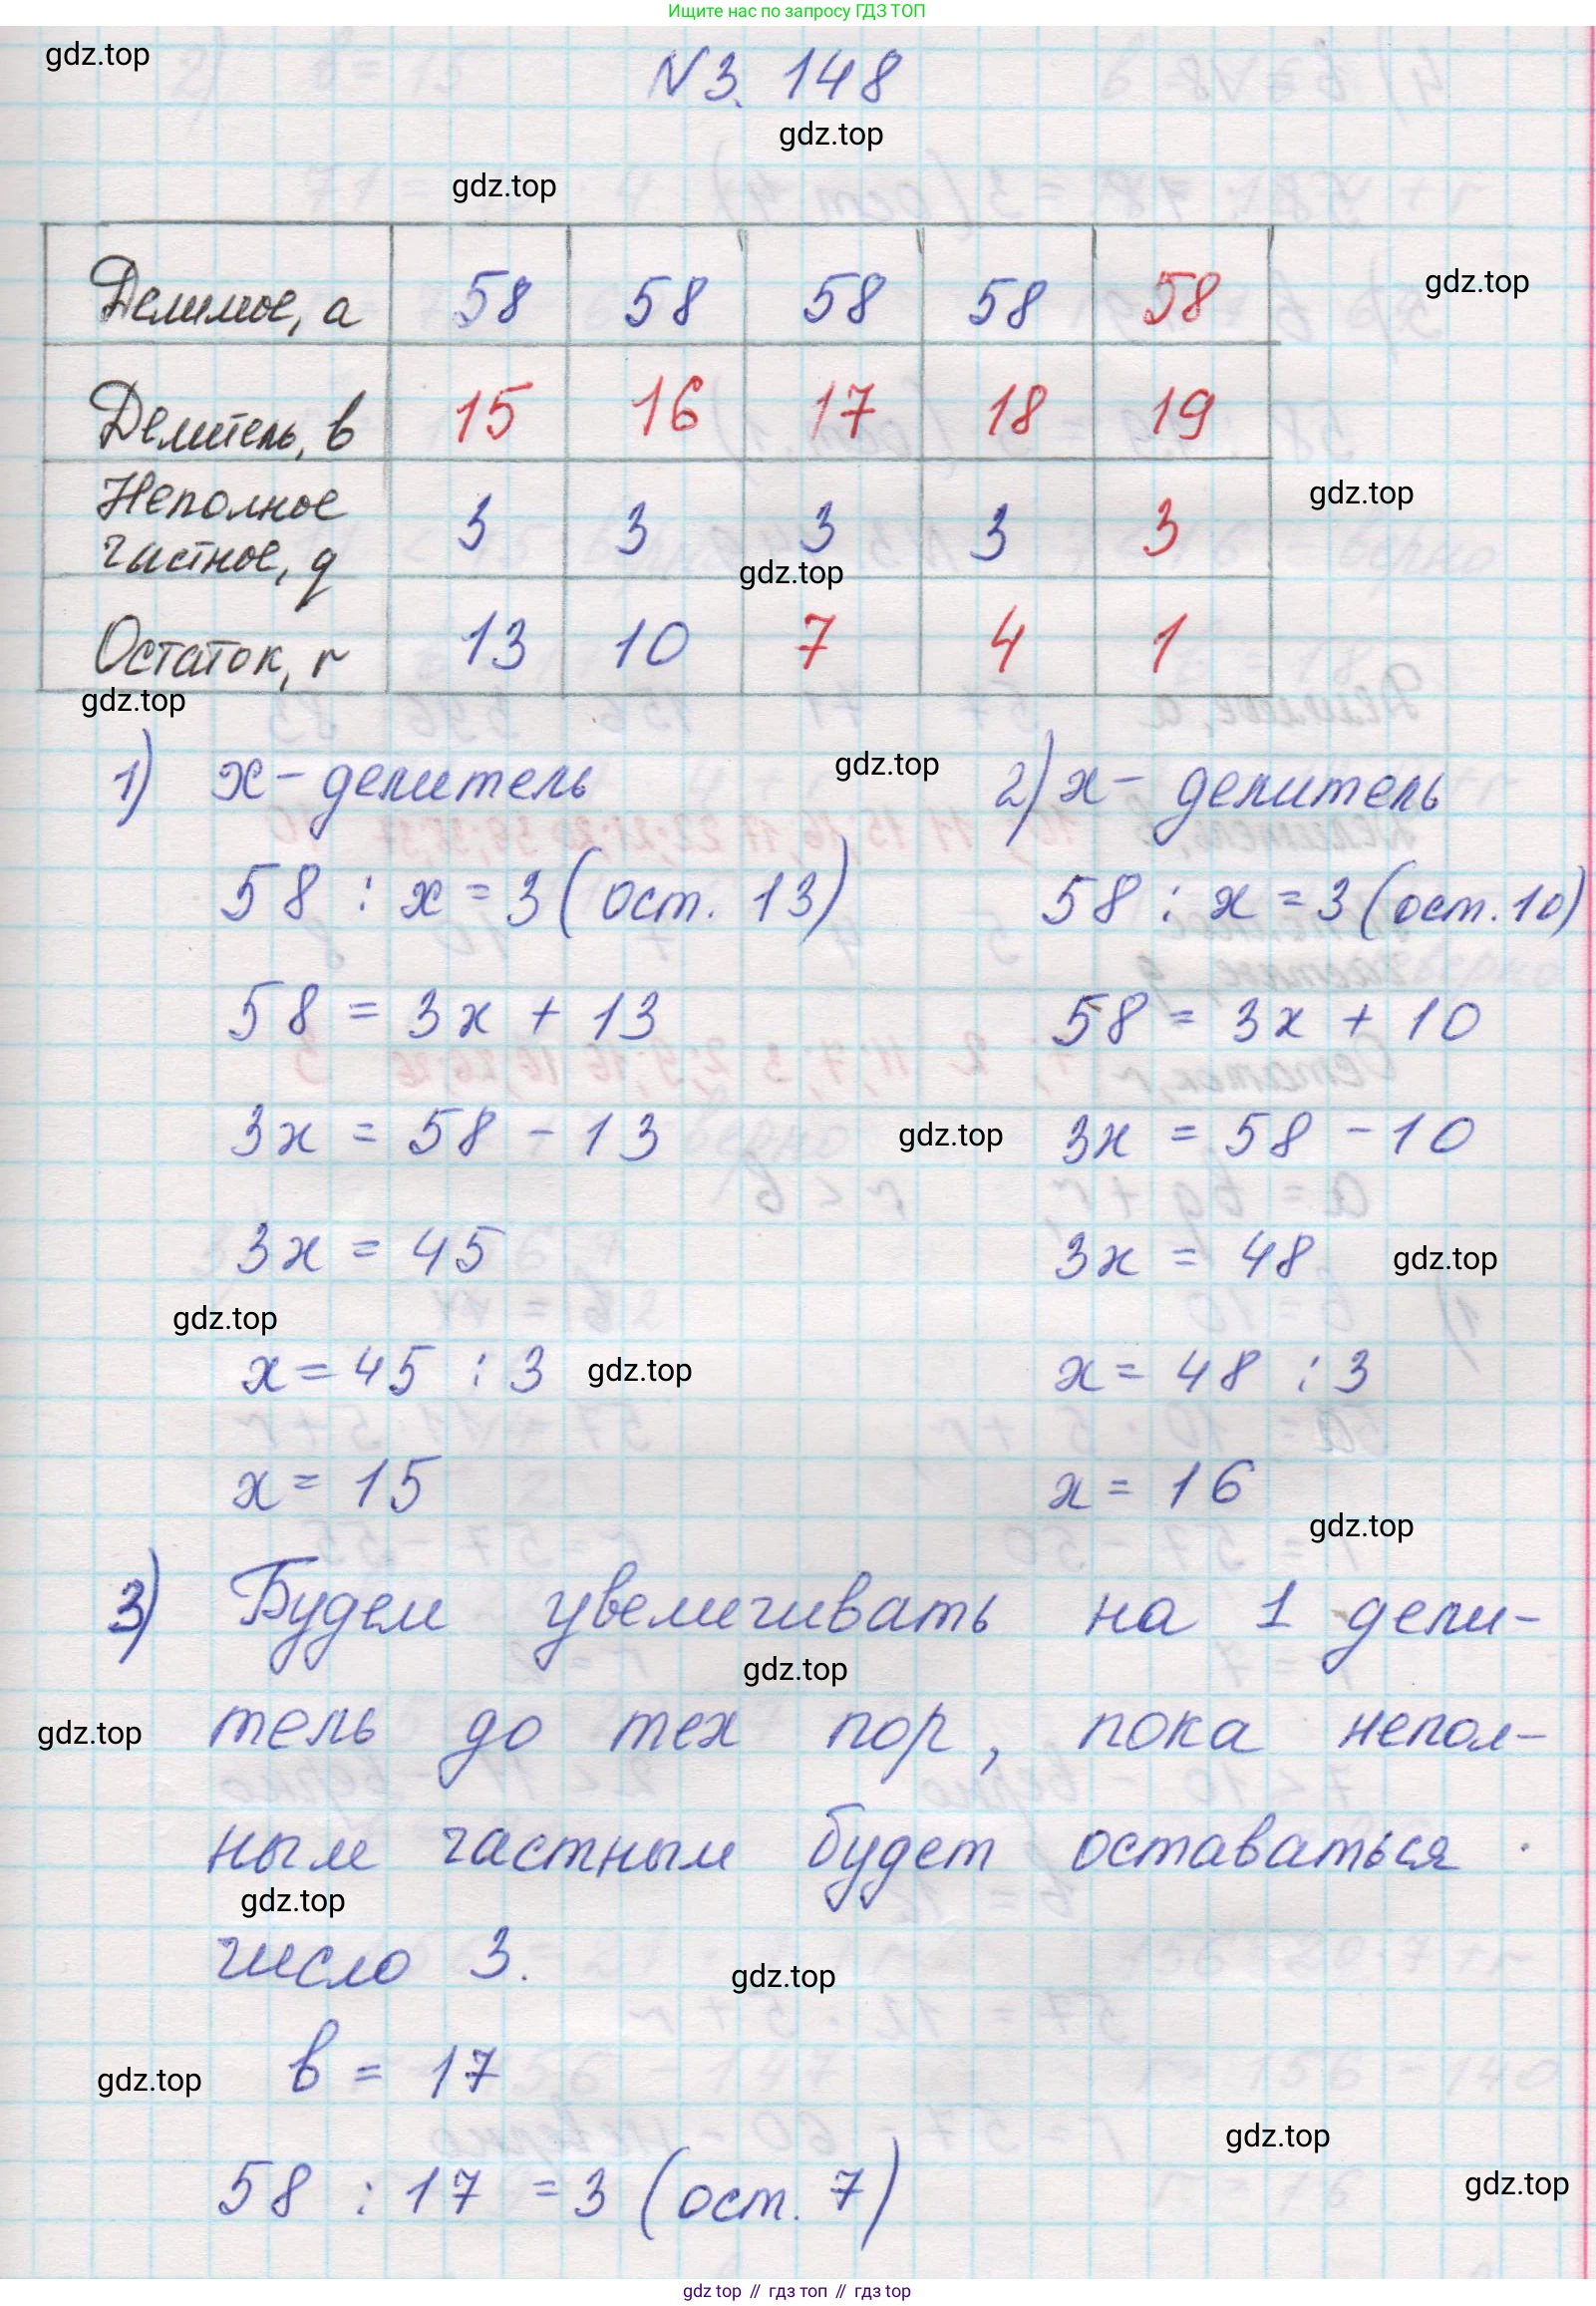 Ищите нас по запросу ГДЗ ТОП
gdz.top
N 3. 148
gdz.top
gdz.top
Делимое, а 58 58 58 58 58
gdz.top
Делитель, в 15 16 17 18 19
Неполное частное, q 3 3 3 3 3
gdz.top
gdz.top
Остаток, r 13 10 7 4 1
gdz.top
1) х - делитель
gdz.top
58 : х = 3 (ост. 13)
58 = 3х + 13
3х = 58 - 13
3х = 45
gdz.top
х = 45 : 3
gdz.top
х = 15
2) х - делитель
58 : х = 3 (ост. 10)
58 = 3х + 10
gdz.top
3х = 58 - 10
3х = 48
gdz.top
х = 48 : 3
х = 16
gdz.top
3) Будем увеличивать на 1 дели-
gdz.top
gdz.top
тель до тех пор, пока непол-
ным частным будет оставаться
gdz.top
число 3.
gdz.top
в = 17
gdz.top
gdz.top
58 : 17 = 3 (ост. 7)
gdz.top
gdz top // гдз топ // гдз top